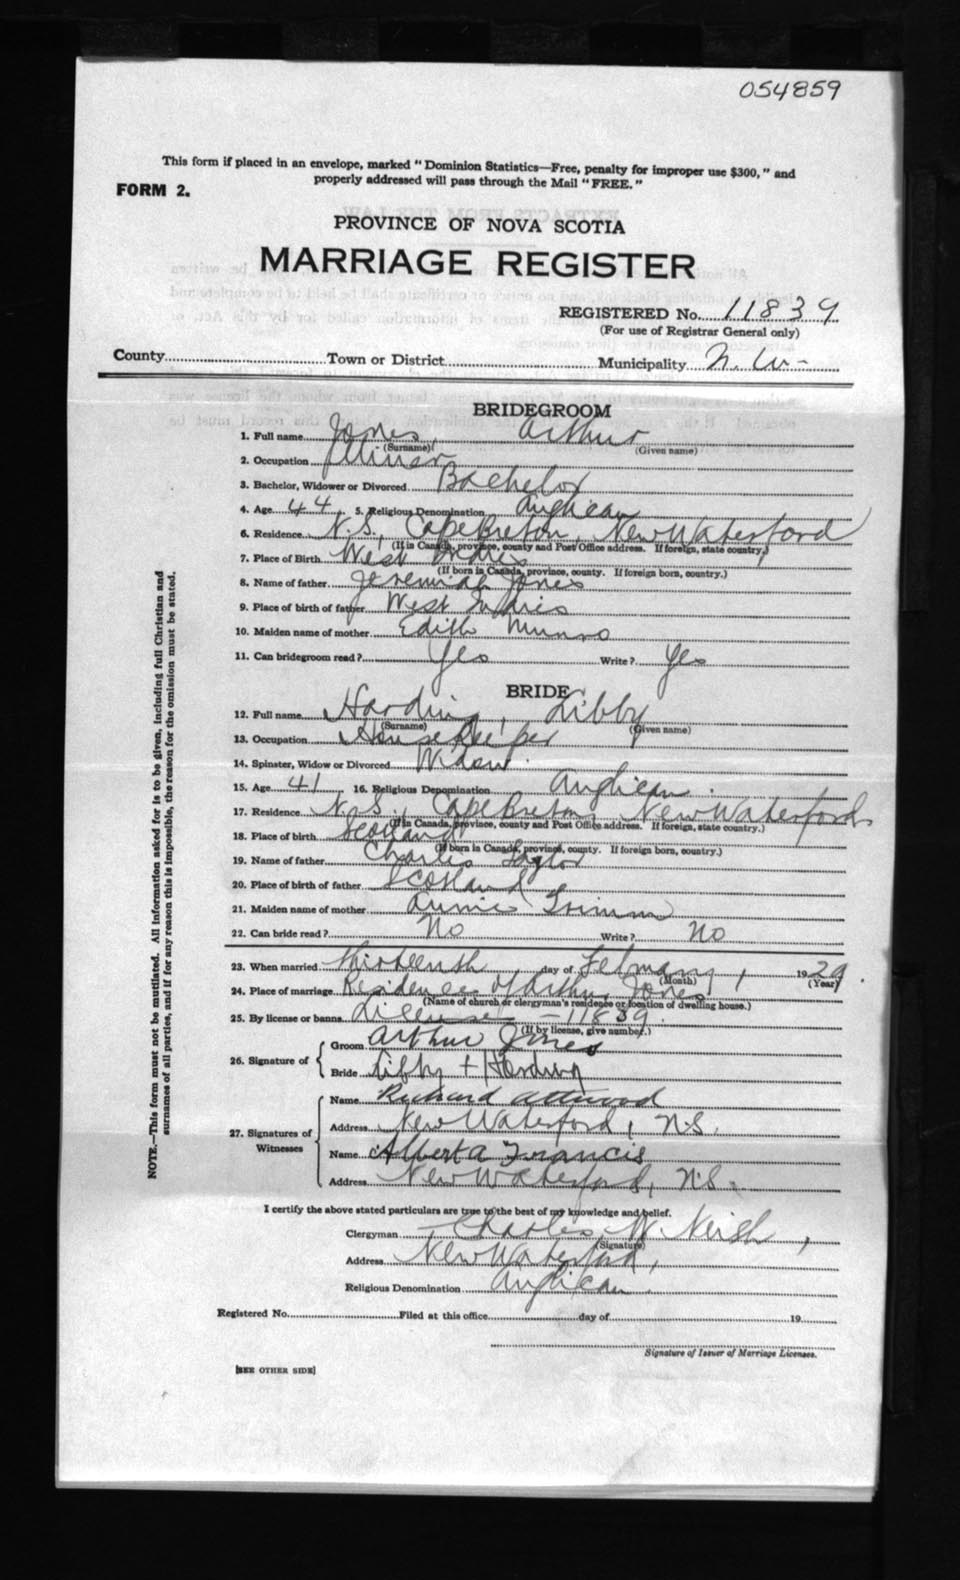 054859
This form if placed in an envelope, marked "Dominion Statistics—Free, penalty for improper use $300," and
properly addressed will pass through the Mail "FREE."
FORM 2.
PROVINCE OF NOVA SCOTIA
MARRIAGE REGISTER
REGISTERED No. 11839
(For use of Registrar General only)
County Town or District Municipality N. W-
BRIDEGROOM
1. Full name Jones, Arthur
(Surname) (Given name)
2. Occupation Miner
3. Bachelor, Widower or Divorced Bachelor
4. Age 44. 5. Religious Denomination Anglican
6. Residence N.S., Cape Breton, New Waterford
(If in Canada, province, county and Post Office address. If foreign, state country.)
7. Place of Birth West Indies
(If born in Canada, province, county. If foreign born, country.)
8. Name of father Jeremiah Jones
9. Place of birth of father West Indies
10. Maiden name of mother Edith Munro
11. Can bridegroom read? Yes Write? Yes
BRIDE
12. Full name Harding, Libby
(Surname) (Given name)
13. Occupation Housekeeper
14. Spinster, Widow or Divorced Widow.
15. Age 41 16. Religious Denomination Anglican.
17. Residence N.S., Cape Breton, New Waterford
(If in Canada, province, county and Post Office address. If foreign, state country.)
18. Place of birth Scotland
(If born in Canada, province, county. If foreign born, country.)
19. Name of father Charles Taylor
20. Place of birth of father Scotland
21. Maiden name of mother Annie
22. Can bride read? No Write? No
23. When married thirteenth day of February, 1929.
(Month) (Year)
24. Place of marriage Residence of Arthur Jones
(Name of church or clergyman's residence or location of dwelling house.)
25. By license or banns License - 11839.
(If by license, give number.)
26. Signature of
Groom Arthur Jones
Bride Libby + Harding
27. Signatures of Witnesses
Name Richard Attwood
Address New Waterford, N.S.
Name Alberta Francis
Address New Waterford, N.S.
I certify the above stated particulars are true to the best of my knowledge and belief.
Clergyman Charles W Neish,
(Signature)
Address New Waterford,
Religious Denomination Anglican.
Registered No. Filed at this office day of 19
Signature of Issuer of Marriage Licenses.
[SEE OTHER SIDE]
NOTE.—This form must not be mutilated. All information asked for is to be given, including full Christian and
surnames of all parties, and if for any reason this is impossible, the reason for the omission must be stated.